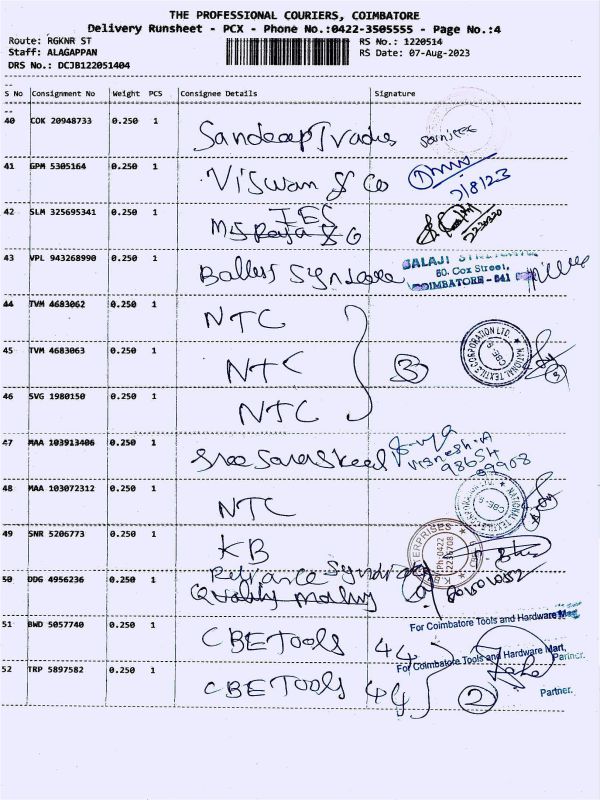 THE PROFESSIONAL COURIERS, COIMBATORE
Delivery Runsheet - PCX - Phone No.:0422-3505555 - Page No.:4
Route: RGKNR ST RS No.: 1220514
Staff: ALAGAPPAN RS Date: 07-Aug-2023
DRS No.: DCJB122051404
S No Consignment No Weight PCS Consignee Details Signature
40 COK 20948733 0.250 1 Sandeep Tradis
41 GPM 5305164 0.250 1 Viswan & Co 7/8/23
42 SLM 325695341 0.250 1 IES
M/s
43 VPL 943268990 0.250 1 BALAJI
60. Cox Street,
COIMBATORE - 641
44 TVM 4683062 0.250 1 NTC
45 TVM 4683063 0.250 1 NTC 3 NATIONAL TEXTILE CORPORATION LTD.
46 SVG 1980150 0.250 1 NTC
47 MAA 103913406 0.250 1 Sree Vignesh.A
98654
09908
48 MAA 103072312 0.250 1 NTC NATIONAL TEXTILE CORPORATION LTD.
49 SNR 5206773 0.250 1 KB ENTERPRISES Ph:0422
50 ODG 4956236 0.250 1 Syndicate
Quality
51 BWD 5057740 0.250 1 CBE Tools 44 For Coimbatore Tools and Hardware Mart,
Partner.
52 TRP 5897582 0.250 1 CBE Tools 44 For Coimbatore Tools and Hardware Mart,
2 Partner.